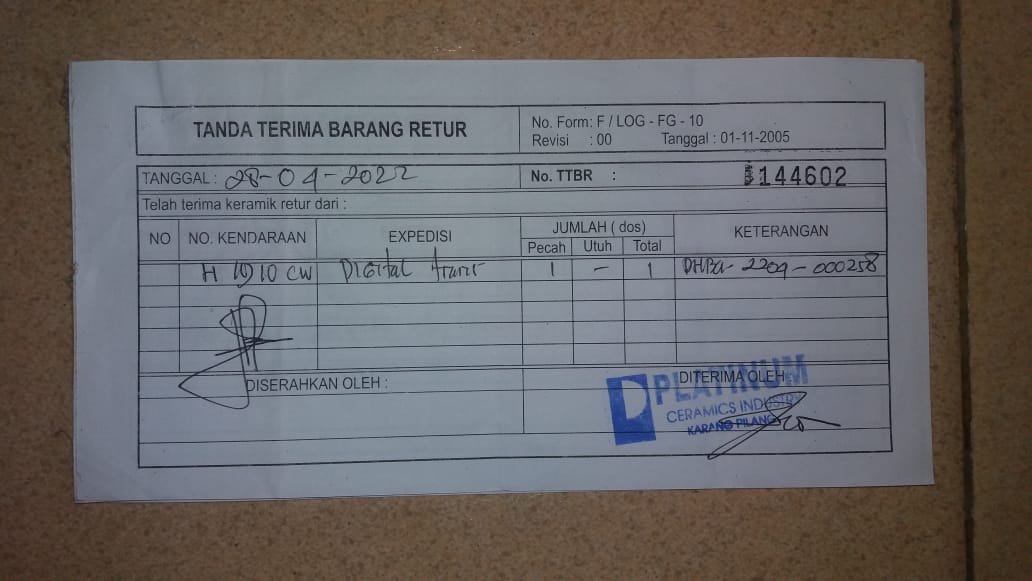 TANDA TERIMA BARANG RETUR
No. Form: F / LOG - FG - 10
Revisi : 00 Tanggal : 01-11-2005
TANGGAL : 28-04-2022
No. TTBR : 144602
Telah terima keramik retur dari :
NO NO. KENDARAAN EXPEDISI JUMLAH ( dos) KETERANGAN
Pecah Utuh Total
H 1910 CW Digital 1 - 1 2209-000258
DISERAHKAN OLEH :
DITERIMA OLEH
PLATINUM
CERAMICS INDUSTRY
KARANG PILANG